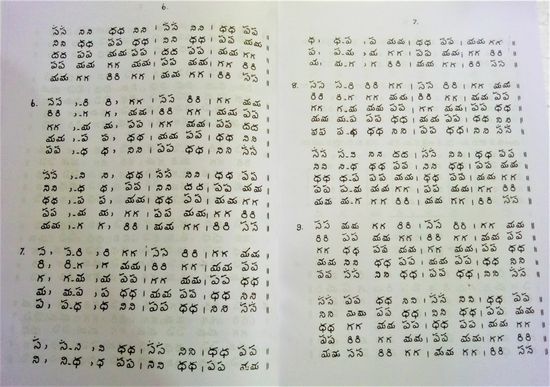 6.
సస నిని ధధ పప । సస నిని । ధధ పప ॥
నిని ధధ పప మమ । నిని ధధ । పప మమ ॥
దద పప మమ గగ । దద పప । మమ గగ ॥
పప మమ గగ రిరి । పప మమ । గగ రిరి ॥
మమ గగ రిరి సస । మమ గగ । రిరి సస ॥
6. సస , -రి రి, గగ । సస రిరి । గగ మమ ॥
రిరి , -గ గ, మమ । రిరి గగ । మమ పప ॥
గగ , -మ మ, పప । గగ మమ । పప దద ॥
మమ , -ప ప, ధధ । మమ పప । ధధ నిని ॥
పప , -ధ ధ, నిని । పప ధధ । నిని సస ॥
సస , -ని ని, ధధ । సస నిని । ధధ పప ॥
నిని , -ధ ధ, పప । నిని దద । పప మమ ॥
ధధ , -ప ప, మమ । ధధ పప । మమ గగ ॥
పప , -మ మ, గగ । పప మమ । గగ రిరి ॥
మమ , -గ గ, రిరి । మమ గగ । రిరి సస ॥
7. స, స-రి ,రి గగ । సస రిరి । గగ మమ ॥
రి, రి-గ ,గ మమ । రిరి గగ । మమ పప ॥
గ, గ-మ ,మ పప । గగ మమ । పప ధధ ॥
మ, మ-ప ,ప ధధ । మమ పప । ధధ నిని ॥
ప, ప-ధ ,ధ నిని । పప ధధ । నిని సస ॥
స, స-ని ,ని ధధ । సస నిని । ధధ పప ॥
ని, ని-ధ ,ధ పప । నిని ధధ । పప మమ ॥
7.
ధ, ధ-ప ,ప మమ । ధధ పప । మమ గగ ॥
ప, ప-మ ,మ గగ । పప మమ । గగ రిరి ॥
మ, మ-గ ,గ రిరి । మమ గగ । రిరి సస ॥
8. సస స-రి రిరి గగ । సస రిరి । గగ మమ ॥
రిరి రి-గ గగ మమ । రిరి గగ । మమ పప ॥
గగ గ-మ మమ పప । గగ మమ । పప ధధ ॥
మమ మ-ప పప ధధ । మమ పప । ధధ నిని ॥
పప ప-ధ ధధ నిని । పప ధధ । నిని సస ॥
సస స-ని నిని దద । సస నిని । ధధ పప ॥
నిని ని-ధ ధధ పప । నిని ధధ । పప మమ ॥
ధధ ధ-ప పప మమ । ధధ పప । మమ గగ ॥
పప ప-మ మమ గగ । పప మమ । గగ రిరి ॥
మమ మ-గ గగ రిరి । మమ గగ । రిరి సస ॥
9. సస మమ గగ రిరి । సస రిరి । గగ మమ ॥
రిరి పప మమ గగ । రిరి గగ । మమ పప ॥
గగ ధధ పప మమ । గగ మమ । పప ధధ ॥
మమ నిని ధధ పప । మమ పప । ధధ నిని ॥
పప సస నిని ధధ । పప ధధ । నిని సస ॥
సస పప ధధ నిని । సస నిని । ధధ పప ॥
నిని మమ పప ధధ । నిని ధధ । పప మమ ॥
ధధ గగ మమ పప । ధధ పప । మమ గగ ॥
పప రిరి గగ మమ । పప మమ । గగ రిరి ॥
మమ సస రిరి గగ । మమ గగ । రిరి సస ॥